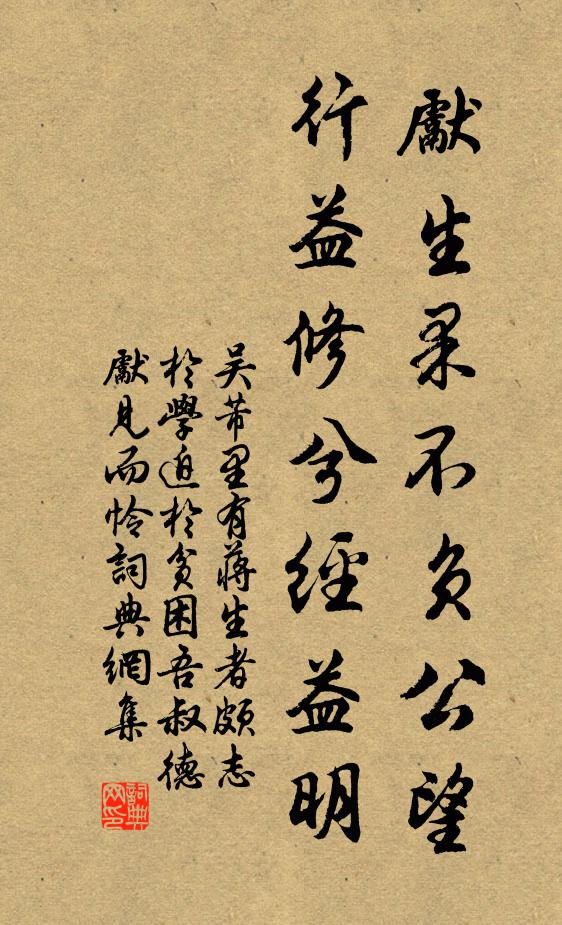 獻生果不負公望
行益修兮經益明
吴芾里有蔣生者頗志
於學迫於貧困吾叔德
獻見而怜詞典網集
詞典
网印